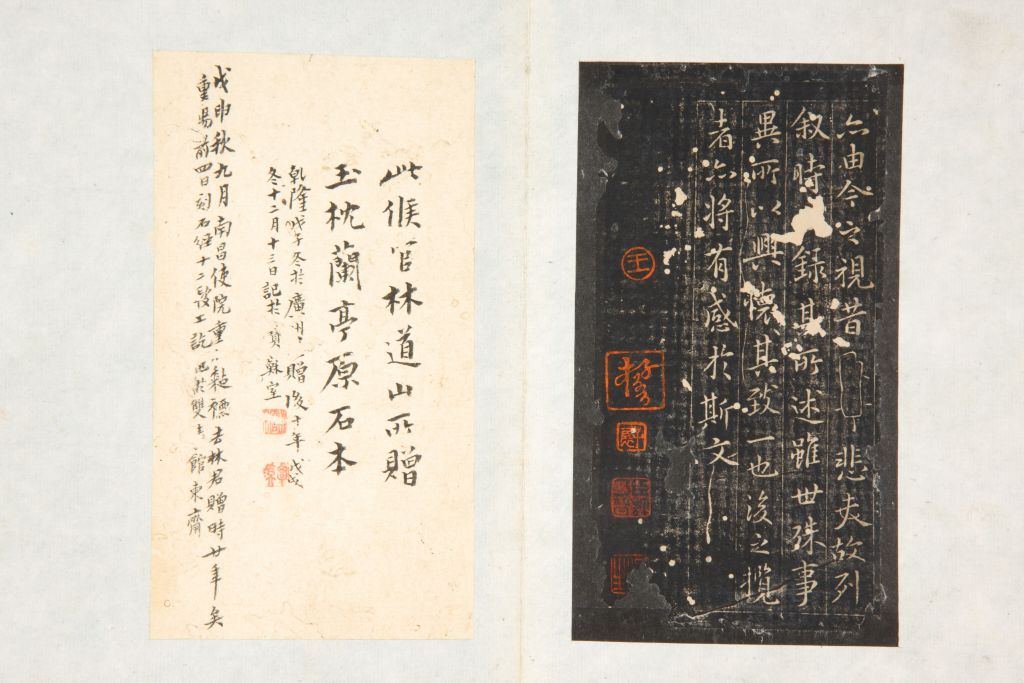 亦由今之視昔
悲夫故列
叙時
錄其所述雖世殊事
異所以興懷其致一也後之攬
者亦將有感於斯文
此候官林道山所贈
玉枕蘭亭原石本
乾隆戊子冬於廣州
贈後十年戊戌
冬十二月十三日記於寶蘇室
戊申秋九月南昌使院重
裝去林君贈時廿年矣
重陽前四日刻石經十二段工訖
齋